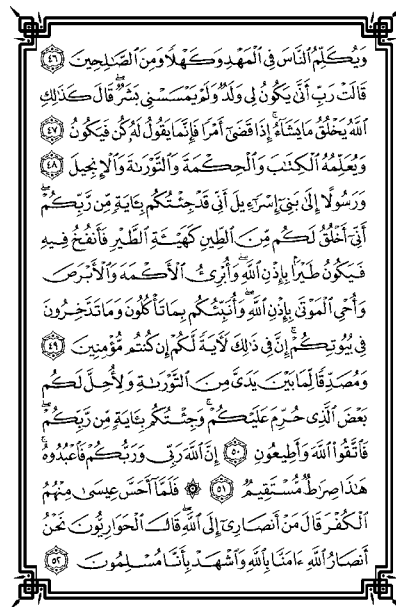 وَيُكَلِّمُ ٱلنَّاسَ فِي ٱلْمَهْدِ وَكَهْلًا وَمِنَ ٱلصَّٰلِحِينَ ٤٦
قَالَتْ رَبِّ أَنَّىٰ يَكُونُ لِي وَلَدٌ وَلَمْ يَمْسَسْنِي بَشَرٌۖ قَالَ كَذَٰلِكِ
ٱللَّهُ يَخْلُقُ مَا يَشَآءُۚ إِذَا قَضَىٰٓ أَمْرًا فَإِنَّمَا يَقُولُ لَهُۥ كُن فَيَكُونُ ٤٧
وَيُعَلِّمُهُ ٱلْكِتَٰبَ وَٱلْحِكْمَةَ وَٱلتَّوْرَىٰةَ وَٱلْإِنجِيلَ ٤٨
وَرَسُولًا إِلَىٰ بَنِيٓ إِسْرَٰٓءِيلَ أَنِّي قَدْ جِئْتُكُم بِـَٔايَةٍ مِّن رَّبِّكُمْۖ
أَنِّيٓ أَخْلُقُ لَكُم مِّنَ ٱلطِّينِ كَهَيْـَٔةِ ٱلطَّيْرِ فَأَنفُخُ فِيهِ
فَيَكُونُ طَيْرًۢا بِإِذْنِ ٱللَّهِۖ وَأُبْرِئُ ٱلْأَكْمَهَ وَٱلْأَبْرَصَ
وَأُحْيِ ٱلْمَوْتَىٰ بِإِذْنِ ٱللَّهِۖ وَأُنَبِّئُكُم بِمَا تَأْكُلُونَ وَمَا تَدَّخِرُونَ
فِي بُيُوتِكُمْۚ إِنَّ فِي ذَٰلِكَ لَءَايَةً لَّكُمْ إِن كُنتُم مُّؤْمِنِينَ ٤٩
وَمُصَدِّقًا لِّمَا بَيْنَ يَدَيَّ مِنَ ٱلتَّوْرَىٰةِ وَلِأُحِلَّ لَكُم
بَعْضَ ٱلَّذِي حُرِّمَ عَلَيْكُمْۚ وَجِئْتُكُم بِـَٔايَةٍ مِّن رَّبِّكُمْ
فَٱتَّقُوا۟ ٱللَّهَ وَأَطِيعُونِ ٥٠ إِنَّ ٱللَّهَ رَبِّي وَرَبُّكُمْ فَٱعْبُدُوهُۚ
هَٰذَا صِرَٰطٌ مُّسْتَقِيمٌ ٥١ ۞ فَلَمَّآ أَحَسَّ عِيسَىٰ مِنْهُمُ
ٱلْكُفْرَ قَالَ مَنْ أَنصَارِيٓ إِلَى ٱللَّهِۖ قَالَ ٱلْحَوَارِيُّونَ نَحْنُ
أَنصَارُ ٱللَّهِ ءَامَنَّا بِٱللَّهِ وَٱشْهَدْ بِأَنَّا مُسْلِمُونَ ٥٢